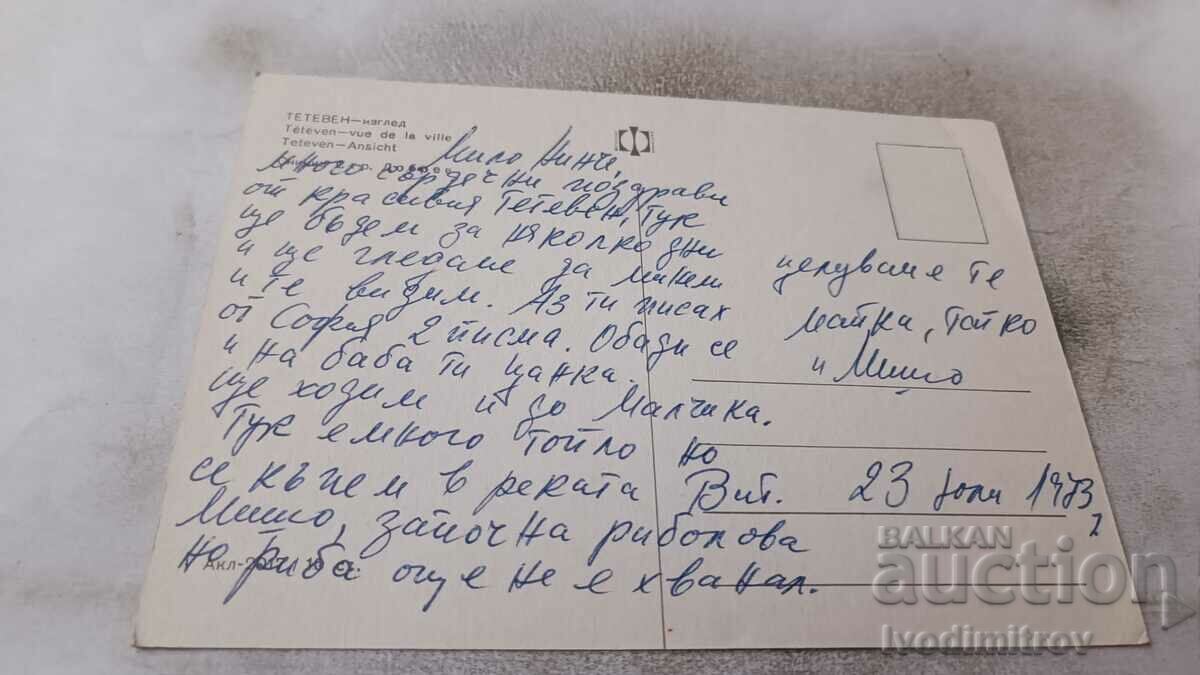 ТЕТЕВЕН—изглед
Téteven—vue de la ville
Teteven—Ansicht
Мило Нинче,
много сърдечни поздрави
от красивия Тетевен. Тук
ще бъдем за няколко дни
и ще гледаме да минем
и те видим. Аз ти писах
от София 2 писма. Обади се
и на баба ти Цанка.
ще ходим и до Малчика.
Тук е много топло но
се къпем в реката Вит.
Мишо, започна риболова
но риба още не е хванал.
Акл-2
целуваме те
Майка, Татко
и Мишо
23 юли 1973
BALKAN
auction
Ivodimitrov